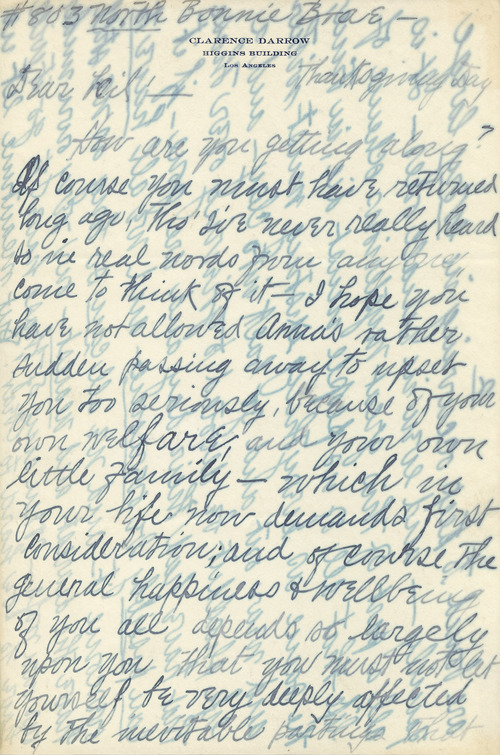 #803 North Bonnie Brae, —
CLARENCE DARROW
HIGGINS BUILDING
LOS ANGELES
Thanksgiving Day
Dear —
How are you getting along?
Of course you must have returned
long ago, Tho' I've never really heard
so in real words from anyone
come to think of it — I hope you
have not allowed Anna's rather
sudden passing away to upset
you too seriously, because of your
own welfare, and your own
little family — which in
your life now demands first
consideration; and of course the
general happiness & wellbeing
of you all depends so largely
upon you that you must not let
yourself be very deeply affected
by the inevitable partings that